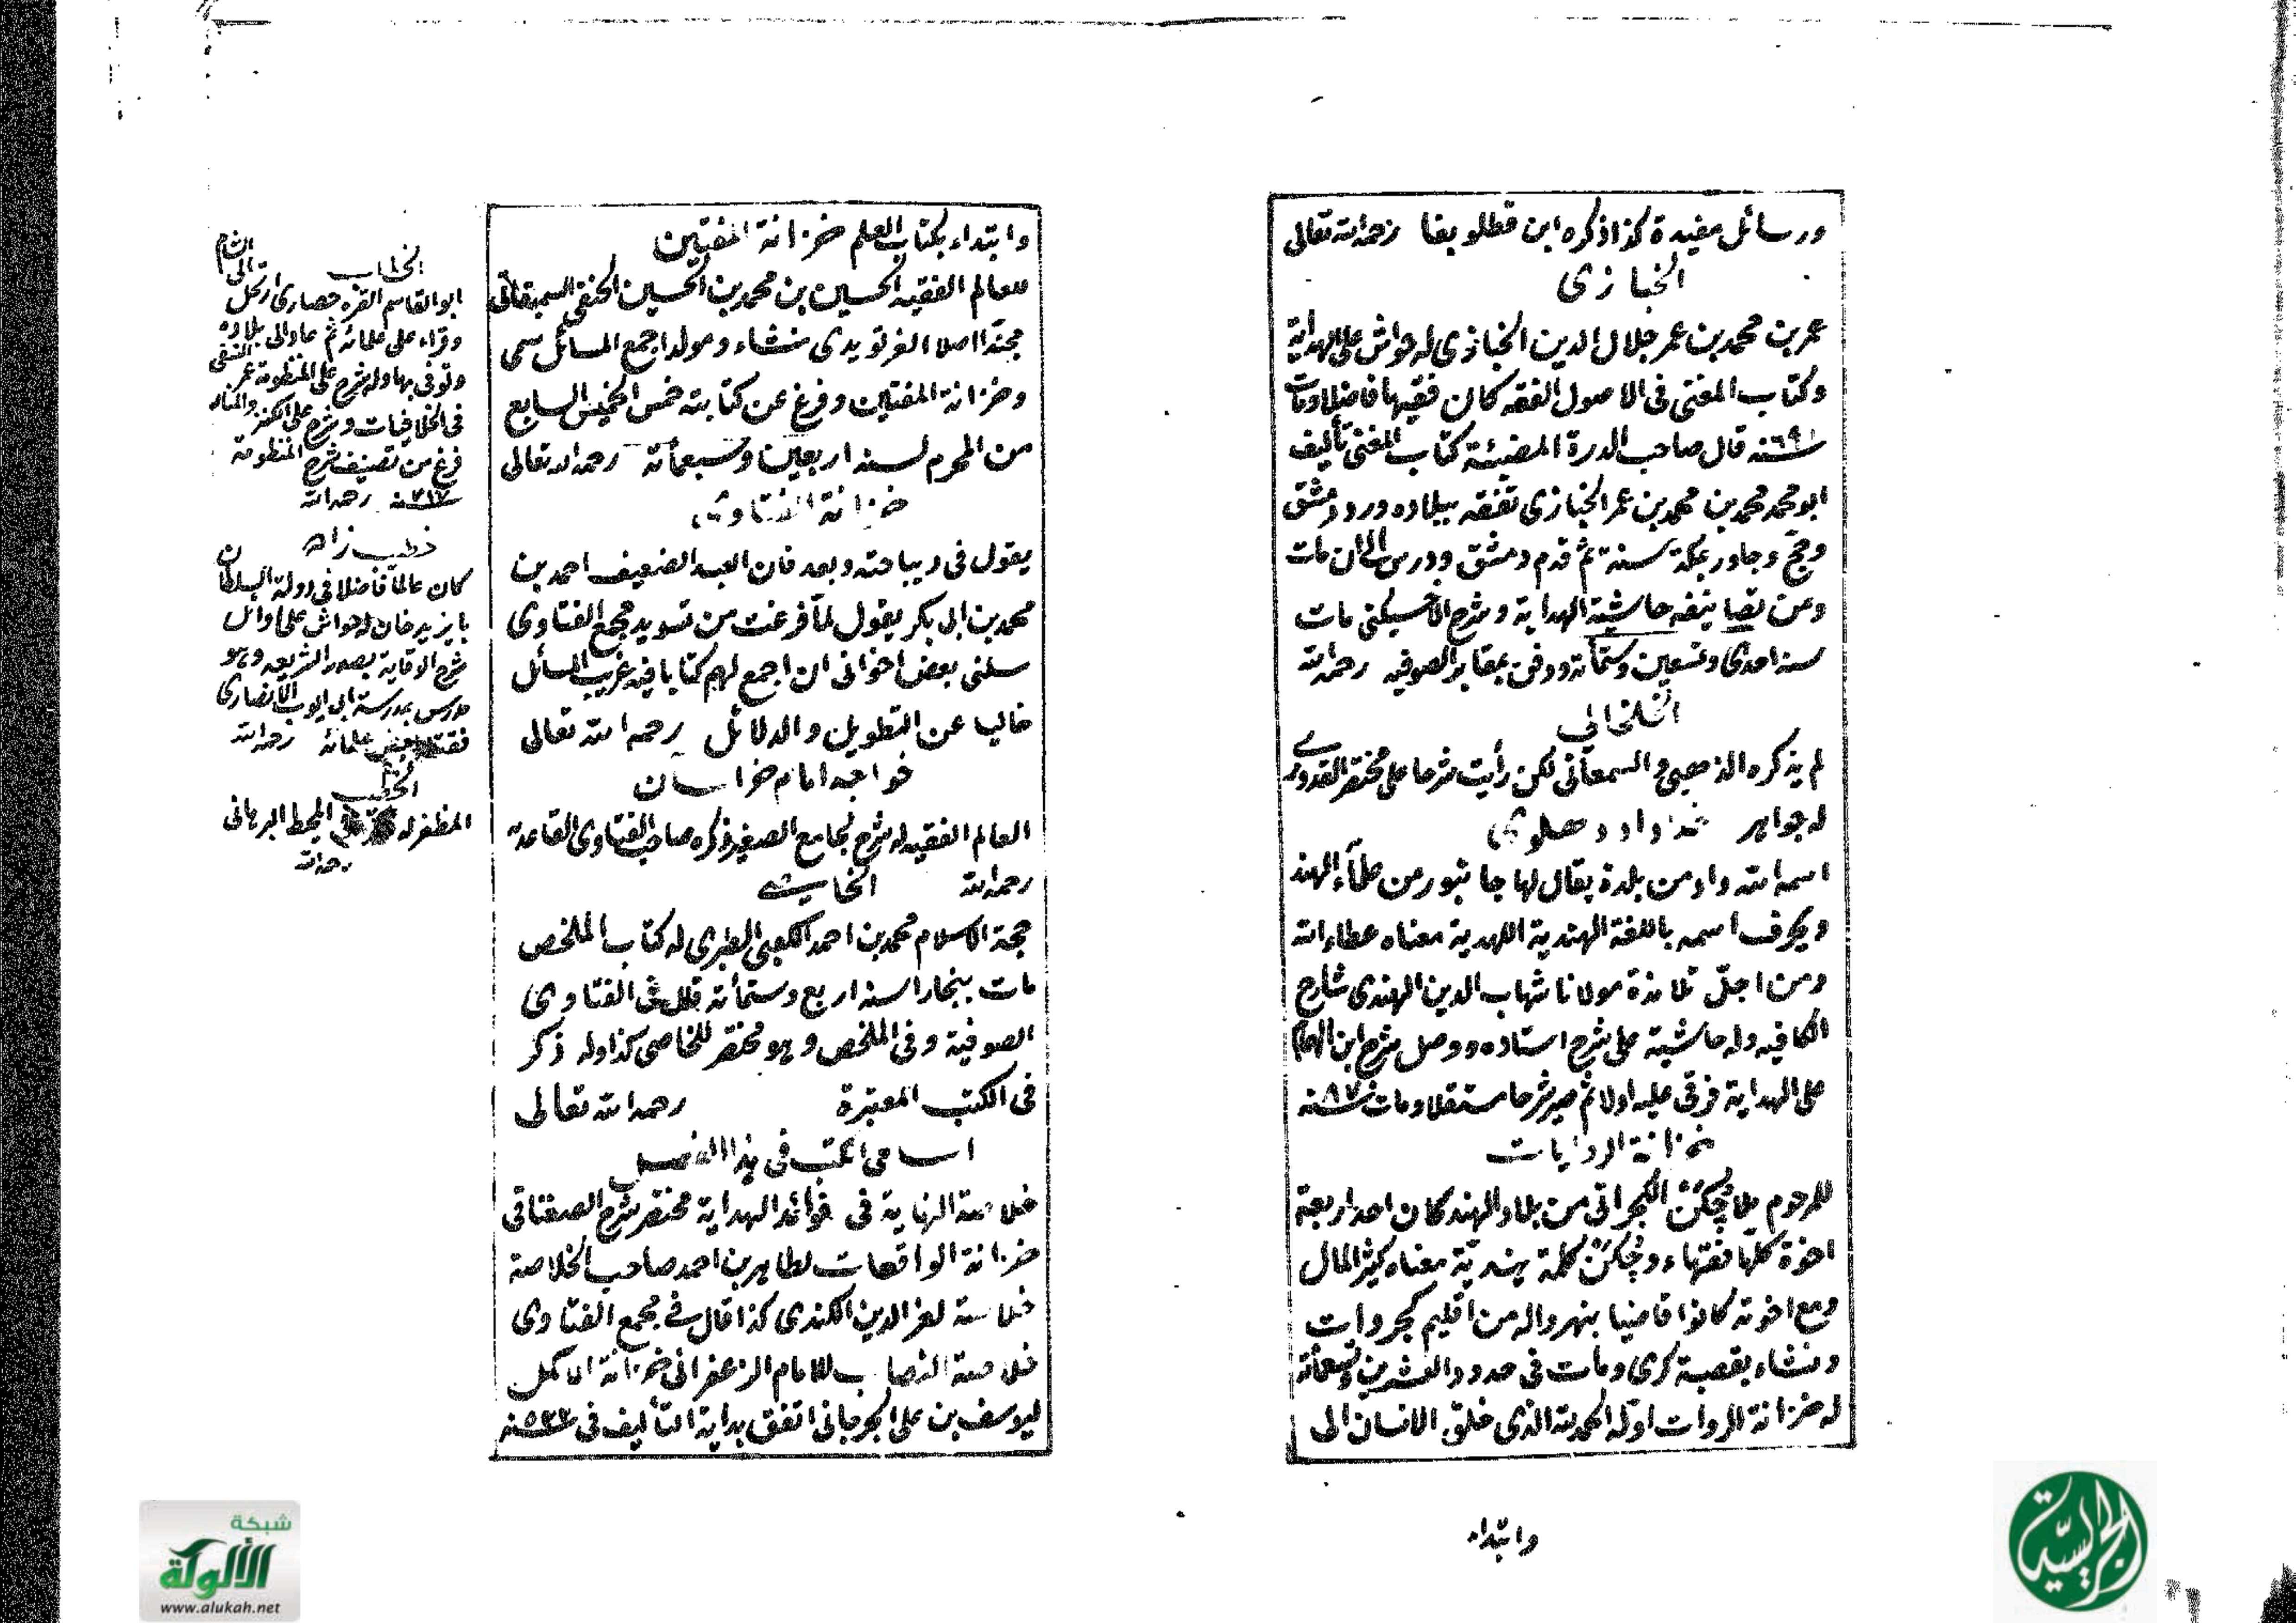 ورسائل مفيدة كذا ذكره ابن قطلوبغا رحمه الله تعالى
الخبازى
عمر بن محمد بن عمر جلال الدين الخبازى له حواش على الهداية
وكتاب المغنى فى الاصول الفقه كان فقيها فاضلا ومات
سنه ٦٩١ قال صاحب الدرة المضيئة كتاب المغنى تأليف
ابو محمد محمد بن محمد بن عمر الخبازى تفقه ببلاده وورد دمشق
وحج وجاور بمكة سنة ثم قدم دمشق ودرس الى ان مات
ومن تصانيفه حاشية الهداية وشرح الاخسيكتى مات
سنه احدى وتسعين وستمأته ودفن بمقابر الصوفيه رحمه الله
الخلخالي
لم يذكره الذهبى والسمعانى لكن رأيت شرحا على مختصر القدورى
له جواهر خداداد دهلوى
اسمه الله داد من بلدة يقال لها جانبور من علمآء الهند
ويحرف اسمه باللغة الهندية اللهدية معناه عطاء الله
ومن اجل تلامذة مولانا شهاب الدين الهندى شارح
الكافيه وله حاشية على شرح استاده ووصل شرح ابن الهمام
على الهداية فرقى عليه اولا ثم صير شرحا مستقلا ومات سنه
خزانة الروايات
للمرحوم ملا چكن الگجراتى من بلاد الهند كان احد اربعة
اخوة كلها فقهاء وچكن كلمة هندية معناه كثير المال
ومع اخوته كانوا قاضيا بنهرواله من اقليم كجروات
ونشاء بقصبة كرى ومات فى حدود العشرين وتسعمأته
له خزانة الروات اوله الحمد لله الذى خلق الانسان الى
وابتداء
وابتداء بكتاب العلم خزانة المفتين
للعالم الفقيه الحسين بن محمد بن الحسين الحنفى السميقانى
محتدا اصلا منشاء ومولدا جمع المسائل سمى
وخزانة المفتين وفرغ عن كتابته خمس الخميس السابع
من المحرم لسنه اربعين وسبعمأته رحمه الله تعالى
خزانة الفتاوى
يقول فى ديباجته وبعد فان العبد الضعيف احمد بن
محمد بن ابى بكر يقول لما فرغت من تسويد مجمع الفتاوى
سئلنى بعض اخوانى ان اجمع لهم كتابا فيه غريب المسائل
خاليا عن التطويل والدلائل رحمه الله تعالى
خواجه امام خراسان
العالم الفقيه له شرح لجامع الصغير ذكره صاحب الفتاوى القاعديه
رحمه الله الخاصى
حجة الاسلام محمد بن احمد الكعبى الطبرى له كتاب الملخص
مات ببخارا سنه اربع وستمأته قال فى الفتاوى
الصوفية وفى الملخص وهو مختصر للخاصى كذا وله ذكر
فى الكتب المعتبرة رحمه الله تعالى
اسامى الكتب فى هذا الفصل
خلاصة النهاية فى فوائد الهداية مختصر شرح الصغناقى
خزانة الواقعات لطاهر بن احمد صاحب الخلاصة
خلاصة لعز الدين الكندى كذا قال فى مجمع الفتاوى
خلاصة النصاب للامام الزعفرانى خزانة الاكمل
ليوسف بن على الجرجانى اتفق بداية التأليف فى سنه
الخطاب
ابو القاسم القره حصارى ارتحل الى الشام
وقراء على علمائه ثم عاد الى بلاده
وتوفى بها وله شرح على المنظومة عمر النسفى
فى الخلافيات وشرح على الكنز والمنار
فرغ من تصنيف شرح المنظومة
سنه ٧١٧ رحمه الله
خطيب زاده
كان عالما فاضلا فى دولة السلطان
بايزيد خان له حواش على اوائل
شرح الوقاية بصدر الشريعه وهو
مدرس بمدرسة ابى ايوب الانصارى
بعض علمائه رحمه الله
الخطيب
المظفر له المحيط البرهانى
رحمه الله
شبكة
الألوكة
www.alukah.net